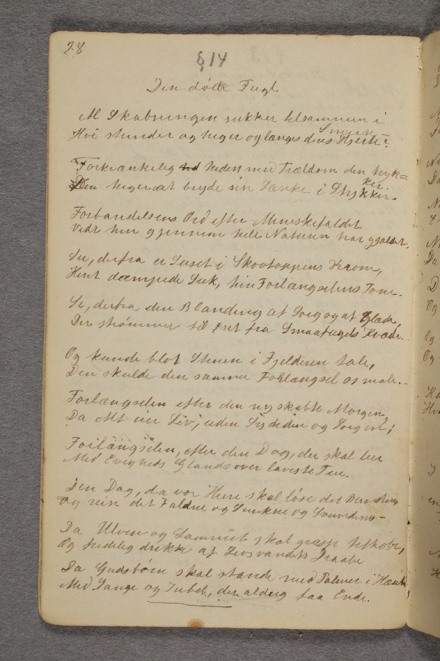 28
§ 14
Den døde Fugl
Al Skabningen sukker tilsammen i Smerte
Hvi stunder og higer og længes dens Hjerte?
Forkrænkelig Heden med Trældom den tryk=ker
Den higer at bryde sin Lænke i Stykker.
Forbandelsens Ord efter Menneskefaldet
Vidt hen gjennem hele Naturen har gjaldet.
Se, derfra er Suset i Skovtoppens Krone,
Hint dæmpede Suk, hin Forlængselens Tone.
Se, derfra den Blanding af Sorg og af Glæde
Der strømmer til Ørt fra Smaafugles Kvæde.
Og kunde blot Stenen i Fjeldene tale,
Den skulde den samme Forlængsel os male.
Forlængselen efter den nyskabte Morgen,
Da Alt er Liv, uden Død og Sorgen;
Forlængselen, efter den Dag, der skal lee
Med Evigheds Glands over laveste Tue.
Den Dag, da vor Herre skal løse det Bundne
og reise det Faldne og Sunkne og
Da Ulven og Lammet skal græsse tilhobe,
Og fredelig drikke af Livsvandets Draabe
Da Gudsbørn skal stande med Palmer i Hænde
Med Sange og Jubel, der aldrig faa Ende.